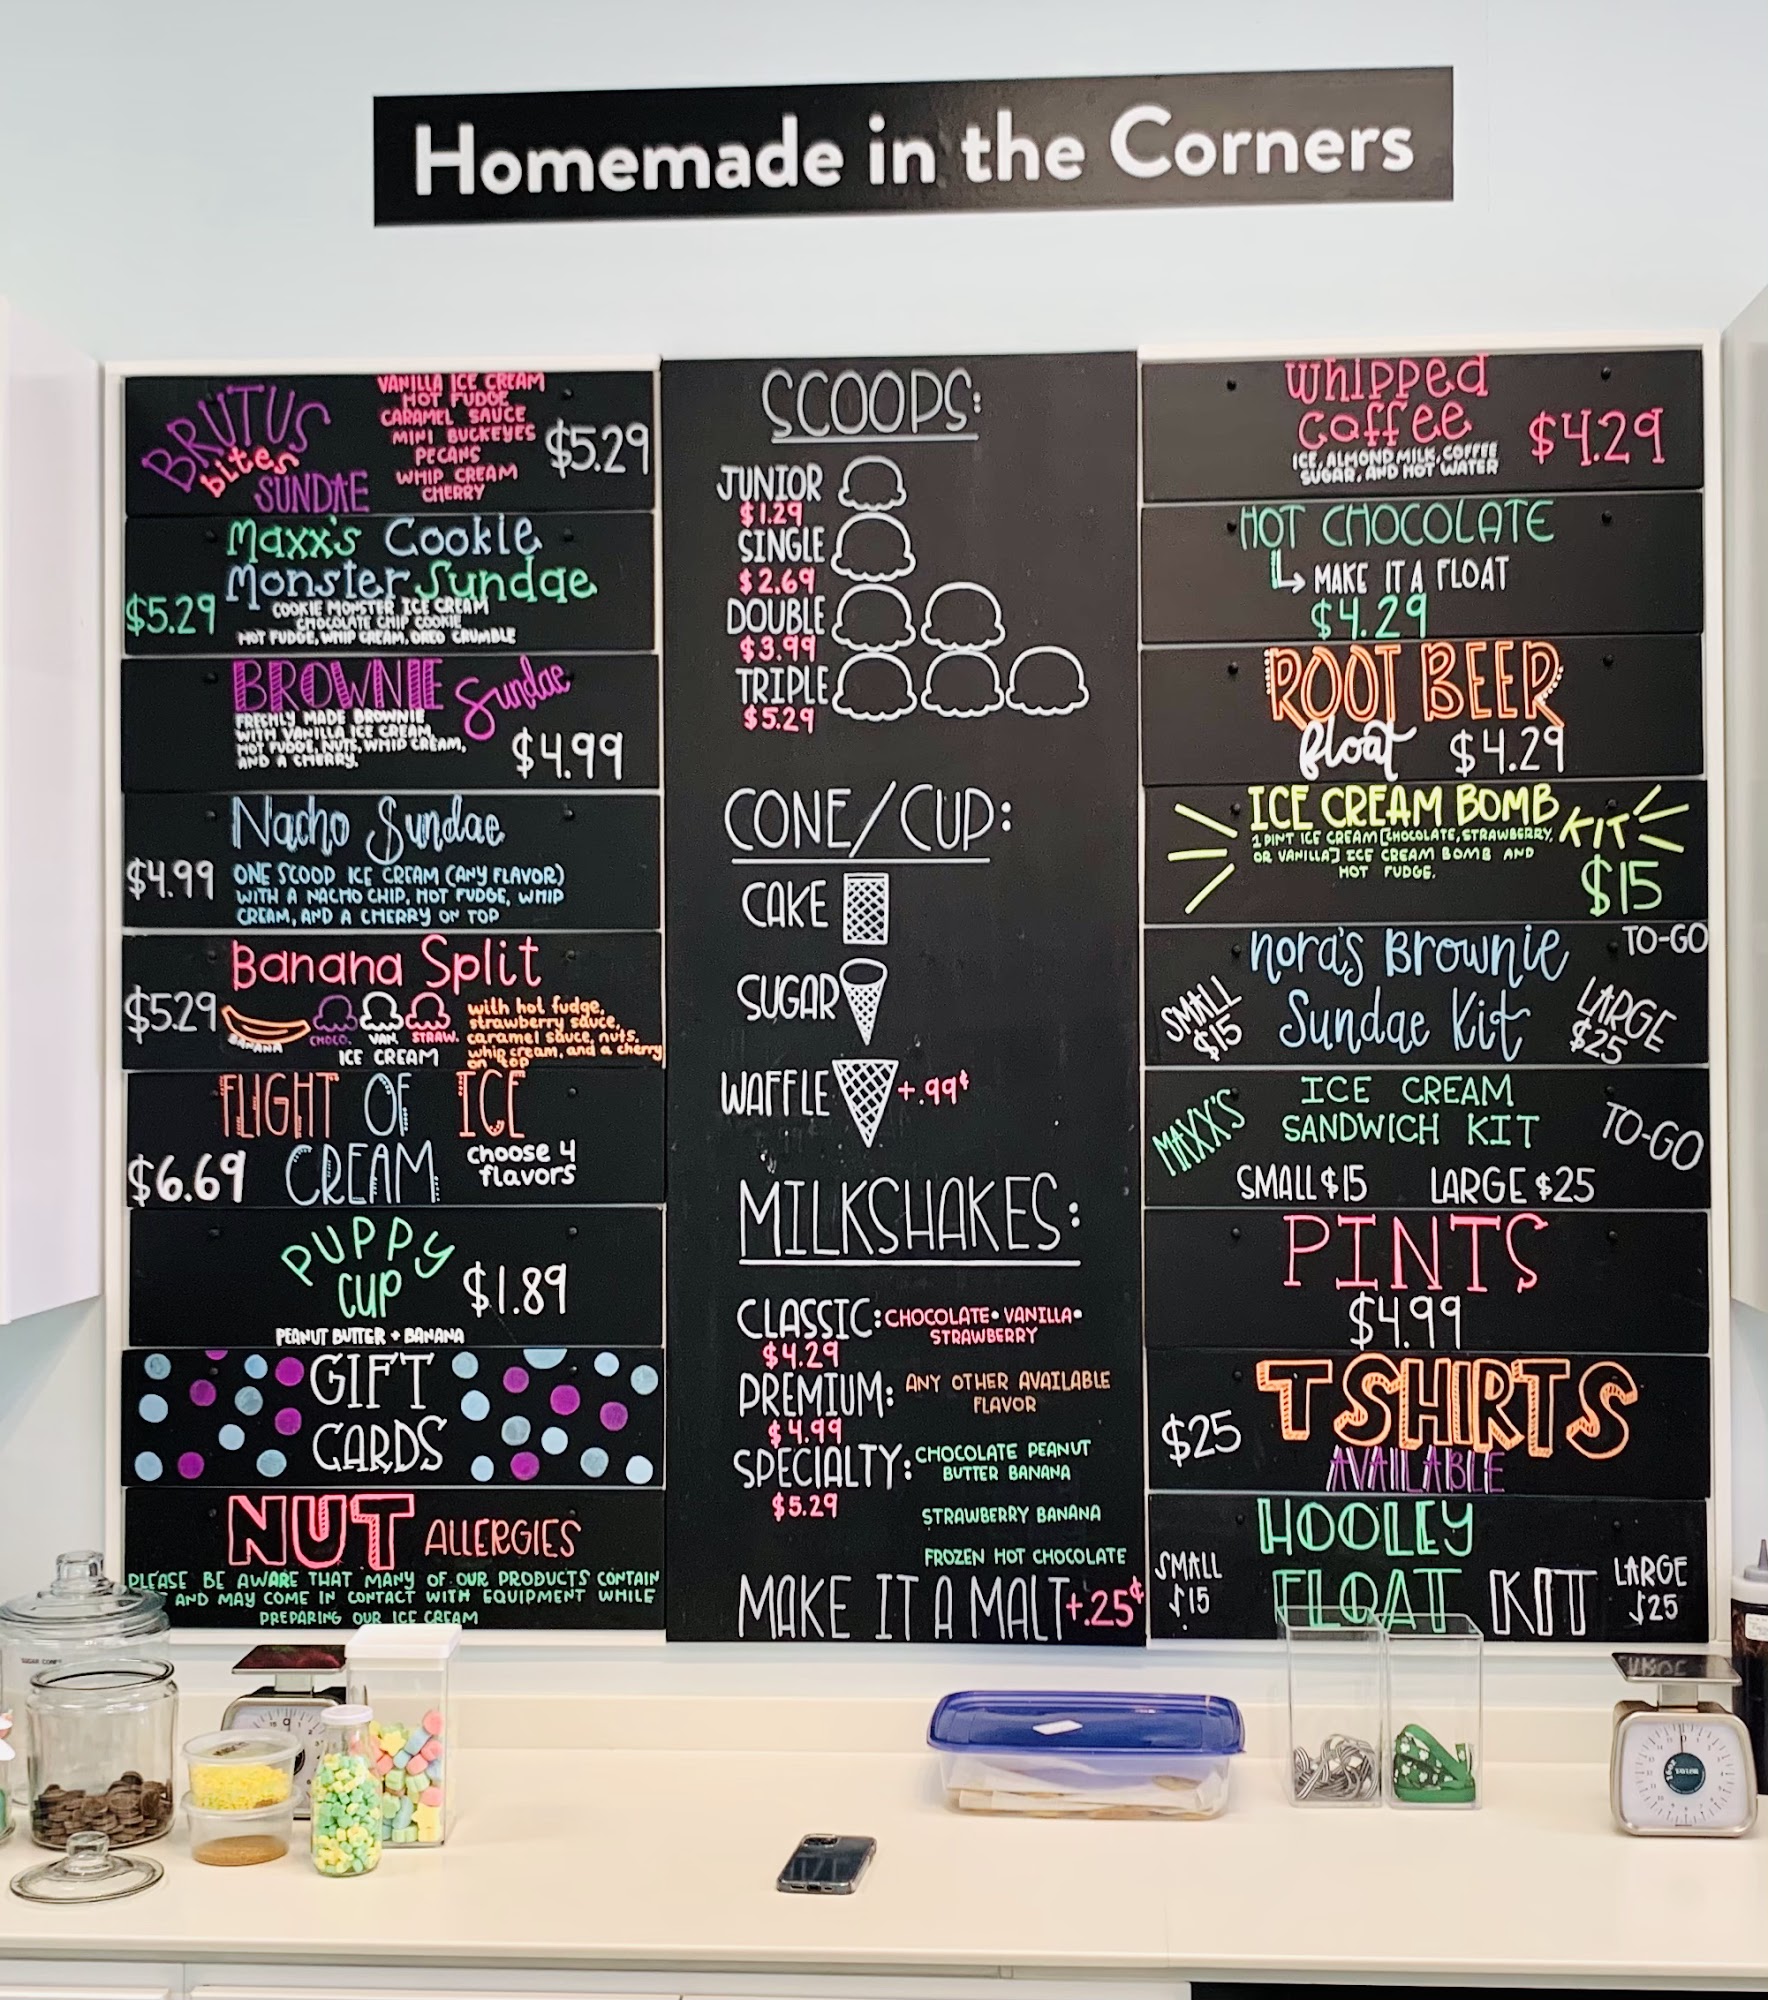 Homemade in the Corners
BRUTUS
bites
SUNDAE
VANILLA ICE CREAM
HOT FUDGE
CARAMEL SAUCE
MINI BUCKEYES
PECANS
WHIP CREAM
CHERRY
$5.29
Maxx's Cookie
Monster Sundae
$5.29
COOKIE MONSTER ICE CREAM
CHOCOLATE CHIP COOKIE
HOT FUDGE, WHIP CREAM, OREO CRUMBLE
BROWNIE Sundae
FRESHLY MADE BROWNIE
WITH VANILLA ICE CREAM,
HOT FUDGE, NUTS, WHIP CREAM,
AND A CHERRY.
$4.99
Nacho Sundae
$4.99
ONE SCOOP ICE CREAM (ANY FLAVOR)
WITH A NACHO CHIP, HOT FUDGE, WHIP
CREAM, AND A CHERRY ON TOP
Banana Split
$5.29
BANANA
CHOCO. VAN. STRAW.
ICE CREAM
with hot fudge,
strawberry sauce,
caramel sauce, nuts,
whip cream, and a cherry
on top
FLIGHT OF ICE
CREAM
$6.69
choose 4
flavors
PUPPY
CUP
$1.89
PEANUT BUTTER + BANANA
GIFT
CARDS
NUT ALLERGIES
PLEASE BE AWARE THAT MANY OF OUR PRODUCTS CONTAIN
AND MAY COME IN CONTACT WITH EQUIPMENT WHILE
PREPARING OUR ICE CREAM
SCOOPS:
JUNIOR
$1.29
SINGLE
$2.69
DOUBLE
$3.99
TRIPLE
$5.29
CONE/CUP:
CAKE
SUGAR
WAFFLE +.99¢
MILKSHAKES:
CLASSIC: CHOCOLATE • VANILLA •
STRAWBERRY
$4.29
PREMIUM: ANY OTHER AVAILABLE
FLAVOR
$4.99
SPECIALTY: CHOCOLATE PEANUT
BUTTER BANANA
$5.29
STRAWBERRY BANANA
FROZEN HOT CHOCOLATE
MAKE IT A MALT +.25¢
Whipped
Coffee
$4.29
ICE, ALMOND MILK, COFFEE
SUGAR, AND HOT WATER
HOT CHOCOLATE
MAKE IT A FLOAT
$4.29
ROOT BEER
float $4.29
ICE CREAM BOMB KIT
1 PINT ICE CREAM [CHOCOLATE, STRAWBERRY,
OR VANILLA] ICE CREAM BOMB AND
HOT FUDGE.
$15
nora's Brownie
Sundae Kit
TO-GO
SMALL
$15
LARGE
$25
MAXX'S
ICE CREAM
SANDWICH KIT
TO-GO
SMALL $15 LARGE $25
PINTS
$4.99
T SHIRTS
AVAILABLE
$25
HOOLEY
FLOAT KIT
SMALL
$15
LARGE
$25